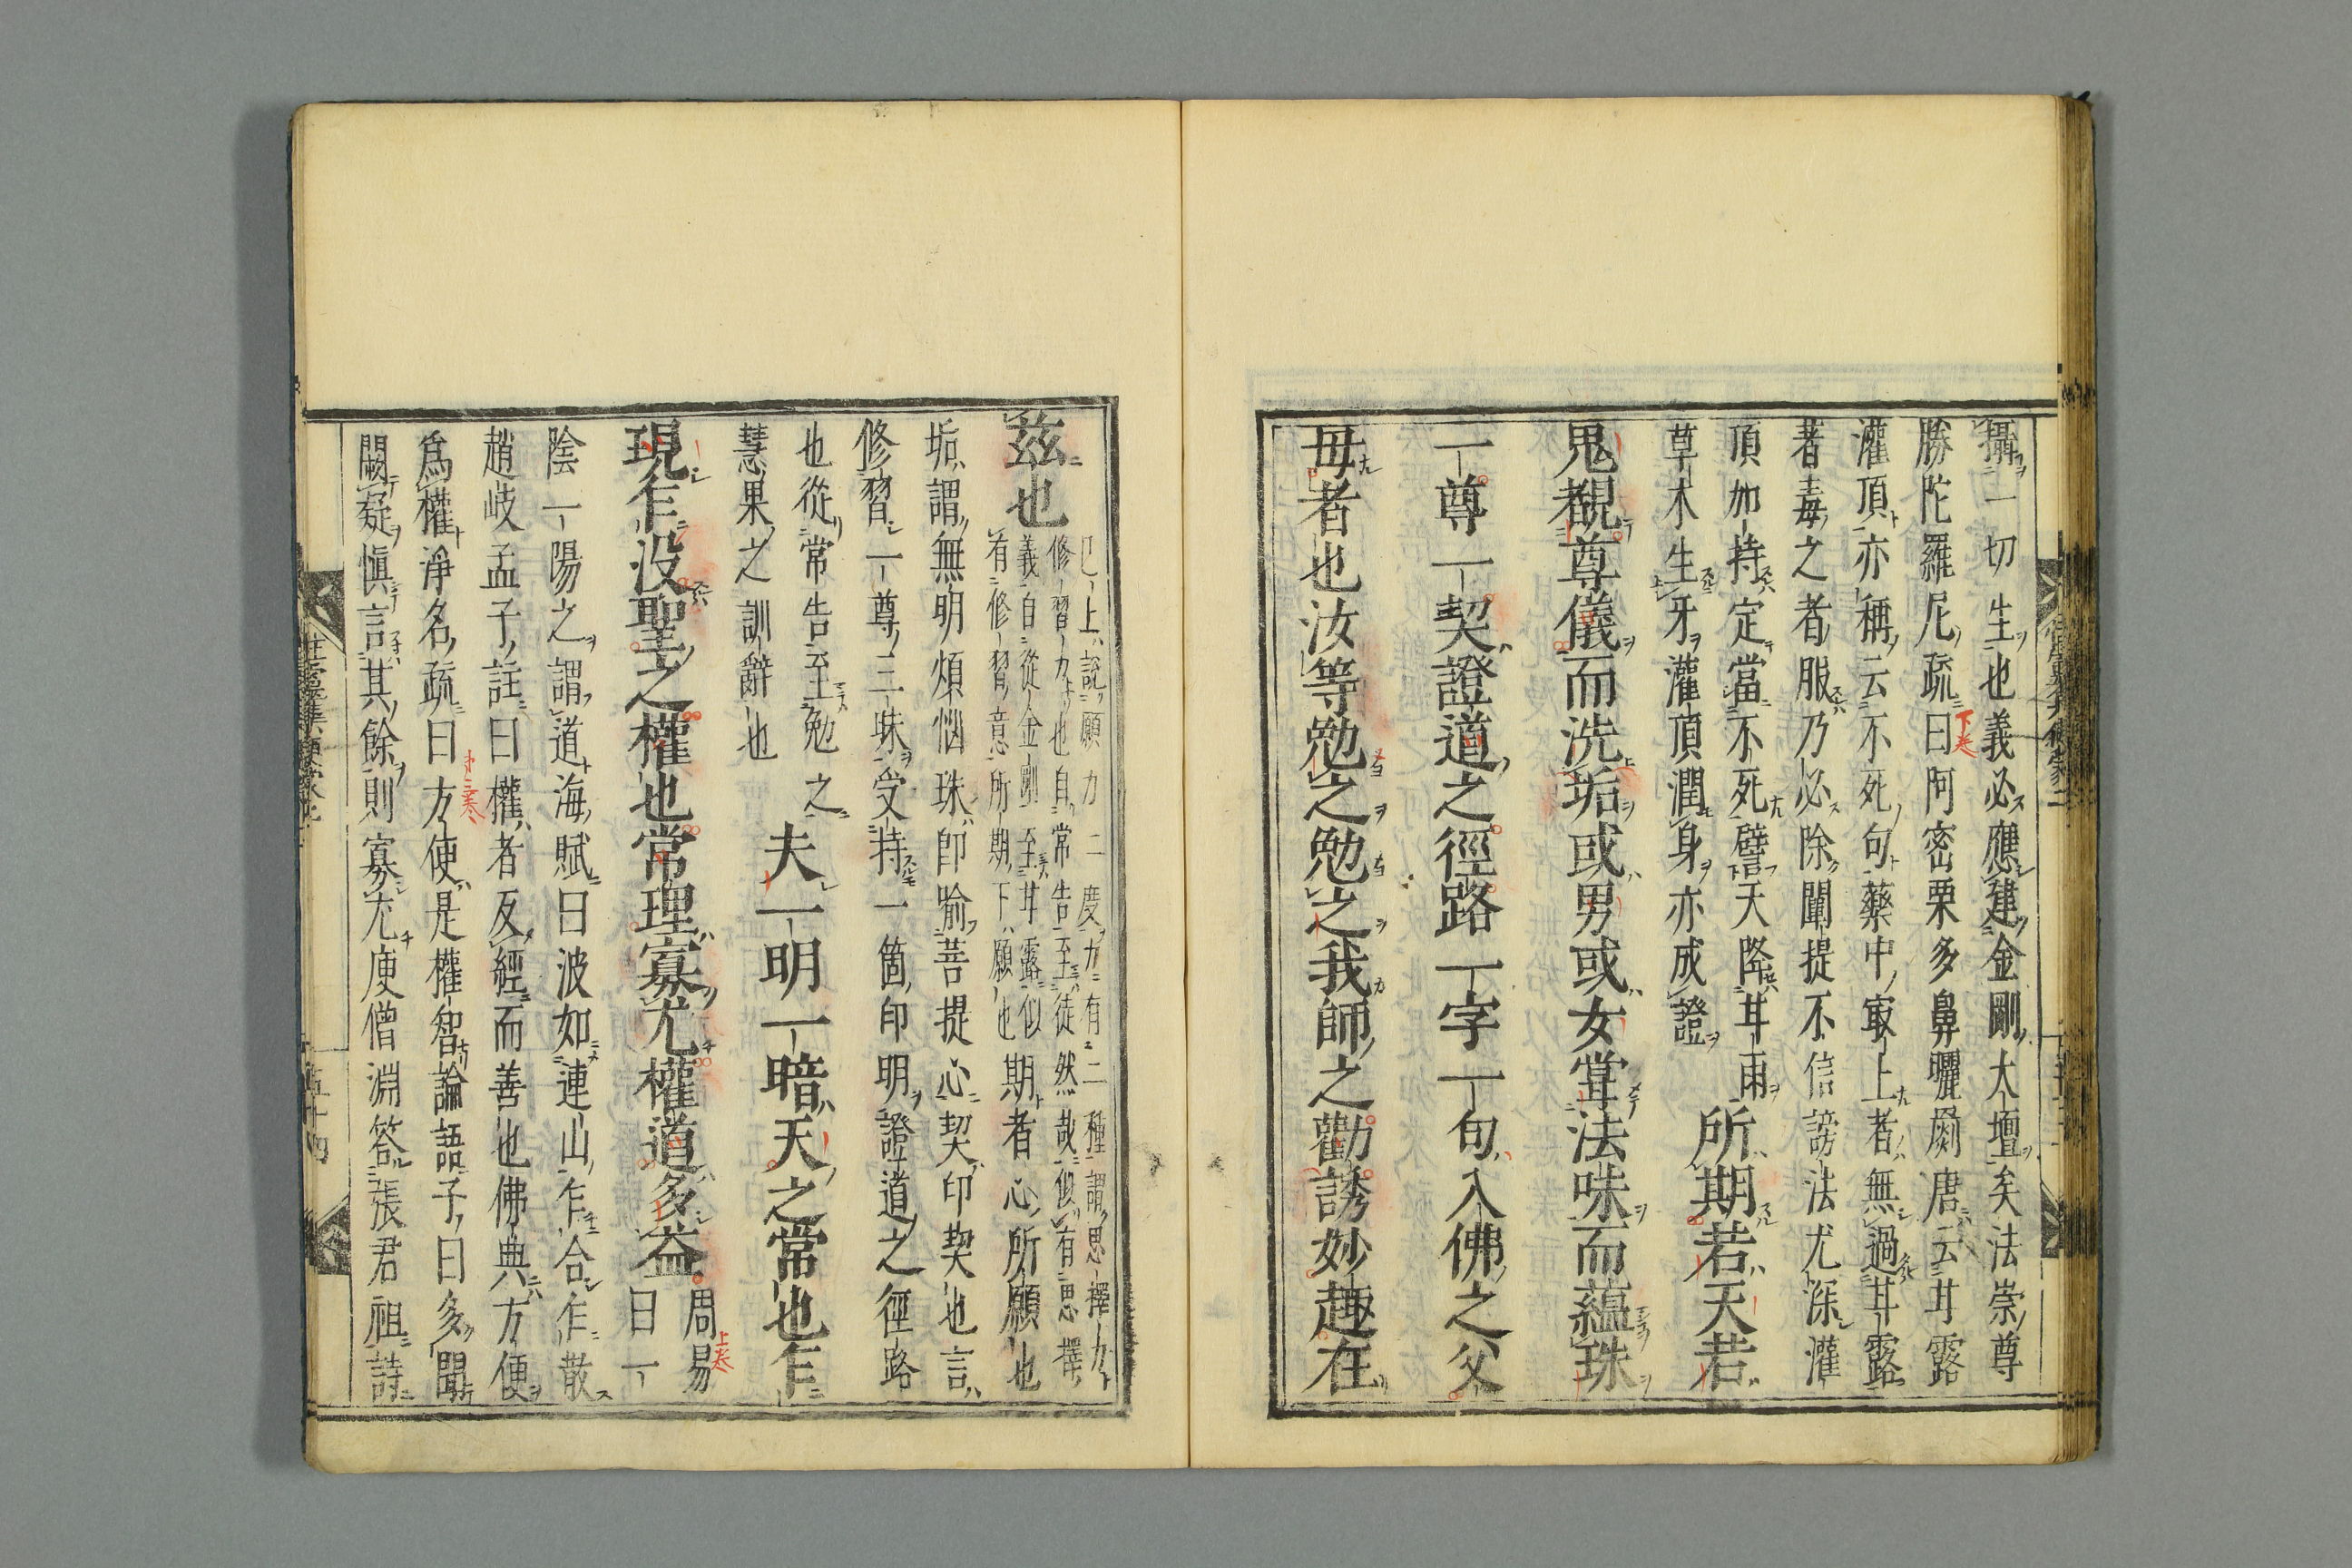 攝一切生也義必應建金剛大壇矣法崇尊
勝陀羅尼疏曰阿密栗多鼻曬罽唐云甘露
灌頂亦稱云不死句藥中最上者無過甘露
著毒之者服乃必除闡提不信謗法尤深灌
頂加持定當不死譬天降甘雨
草木生牙灌頂潤身亦成證
所期若天若
鬼覩尊儀而洗垢或男或女甞法味而蘊珠
一尊一契證道之徑路一字一句入佛之父
母者也汝等勉之勉之我師之勸誘妙趣在
茲也
巳上説願力二度力有二種謂思擇力
修習力也自常告至徒然哉似有思擇
義自從金剛至甘露似
有修習意所期下願也
期者心所願也
垢謂無明煩惱珠即喻菩提心契印契也言
修習一尊三昧受持一箇印明證道之徑路
也從常告至勉之
慧果之訓辭也
夫一明一暗天之常也乍
現乍没聖之權也常理寡尤權道多益
周易
曰一
陰一陽之謂道海賦曰波如連山乍合乍散
趙岐孟子註曰權者反經而善也佛典方便
爲權淨名疏曰方便是權智論語子曰多聞
闕疑愼言其餘則寡尤庾僧淵答張君祖詩
下卷
上卷